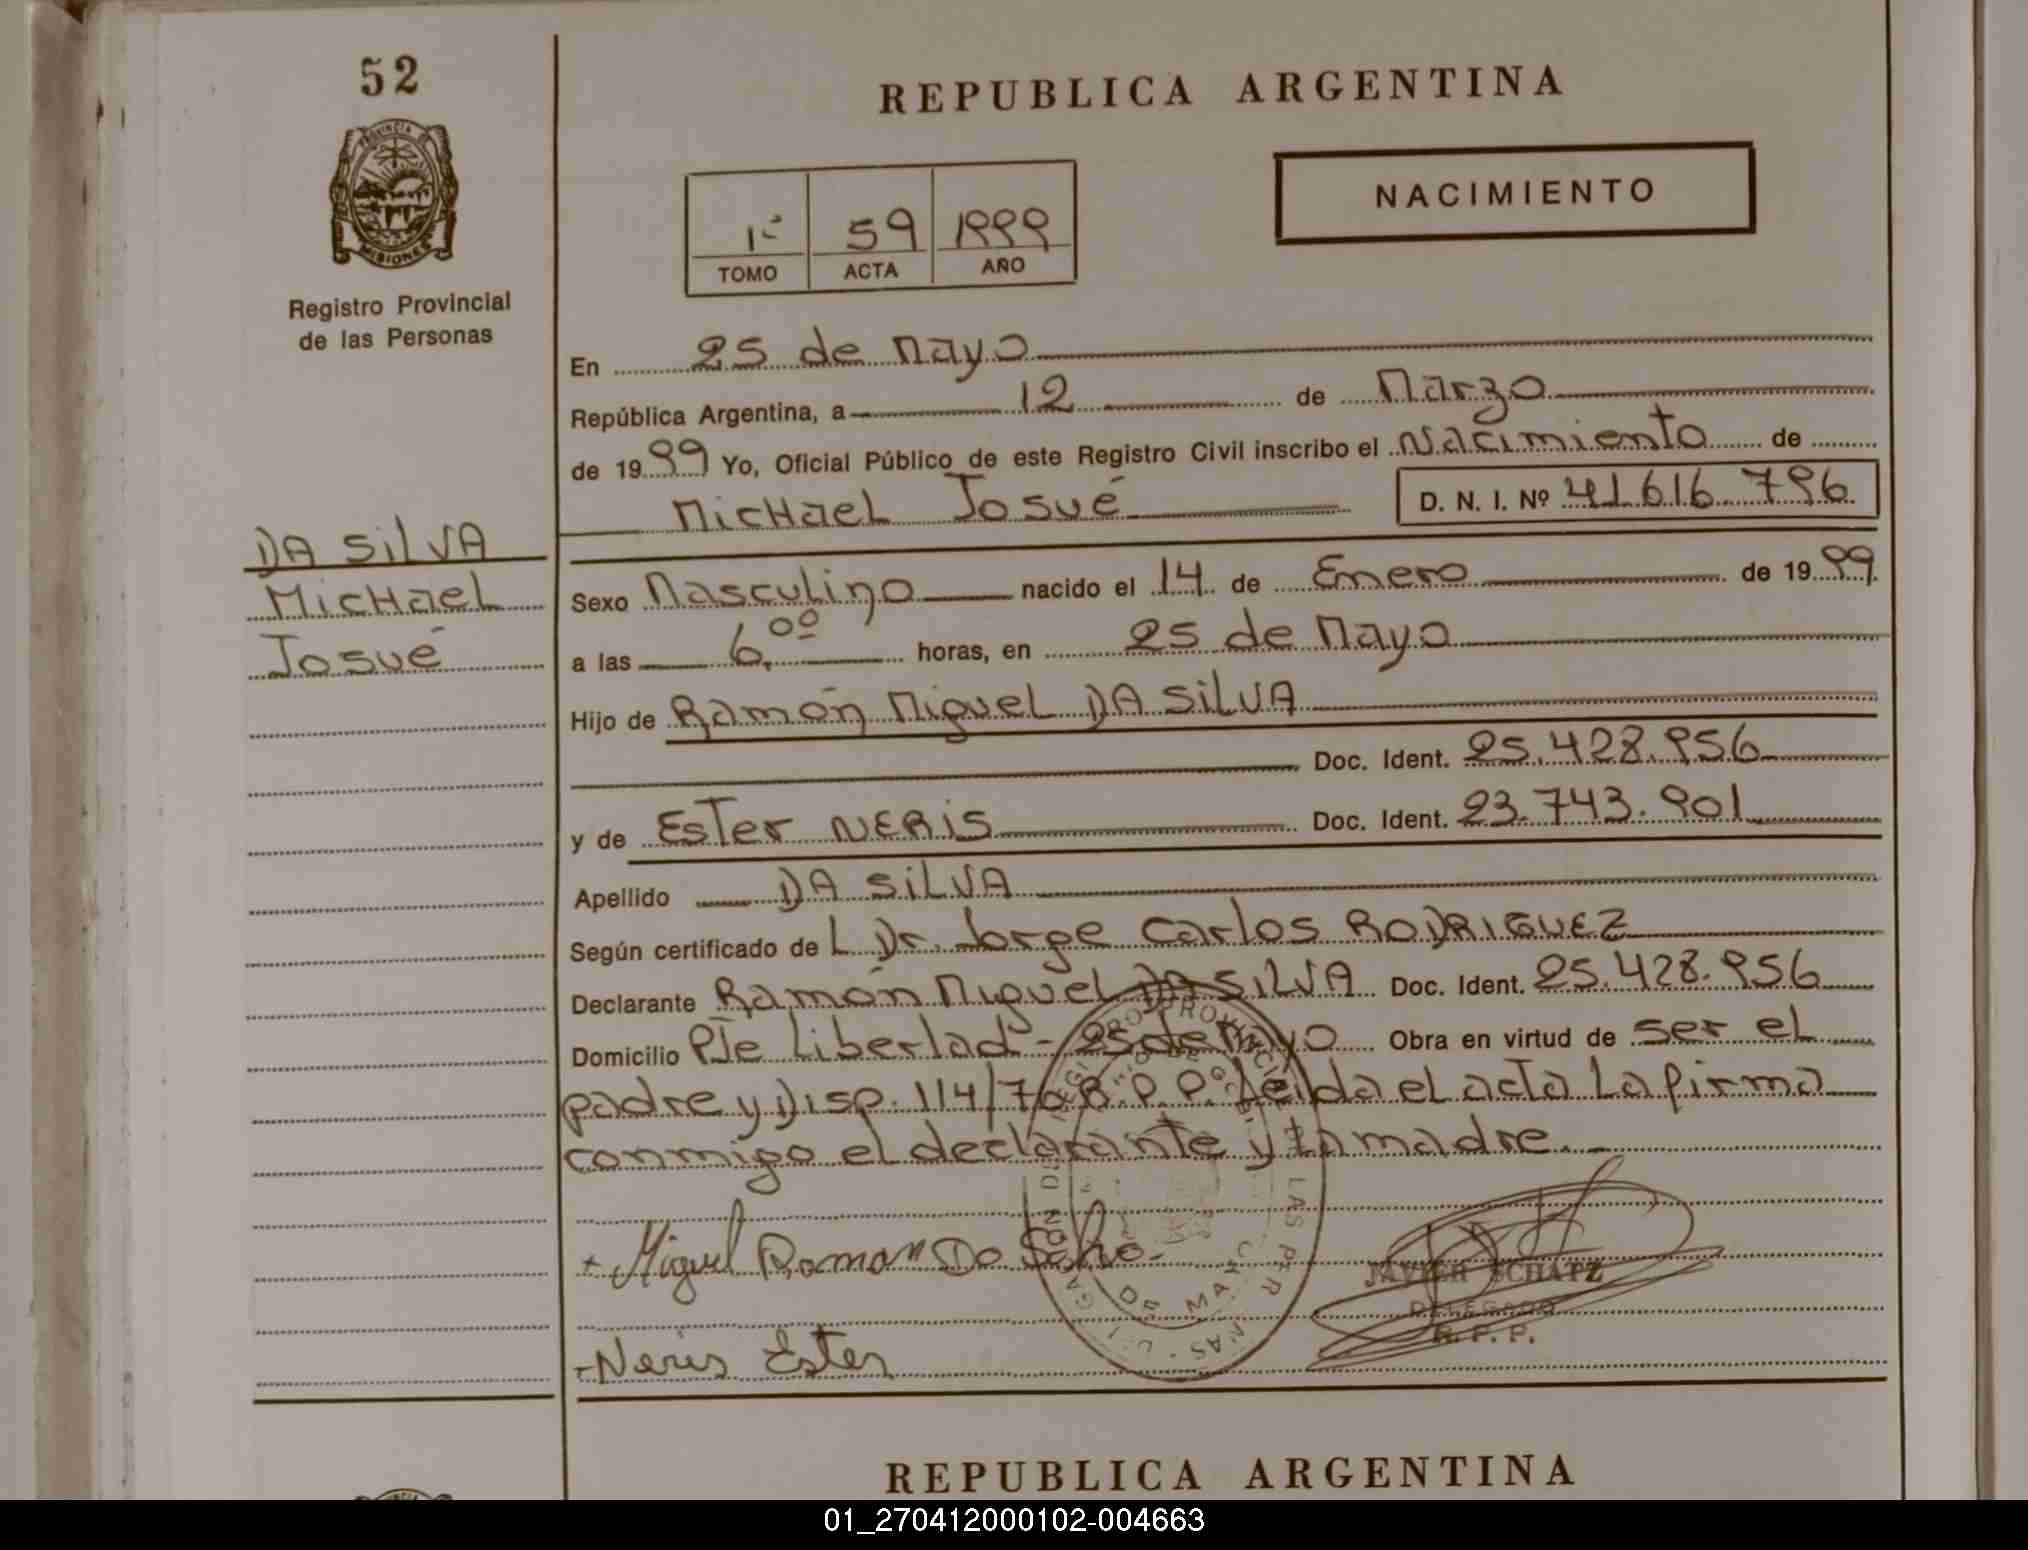 52
REPUBLICA ARGENTINA
PROVINCIA DE
MISIONES
Registro Provincial
de las Personas
NACIMIENTO
1º 59 1999
TOMO ACTA AÑO
En 25 de Mayo
República Argentina, a 12 de Marzo
de 1999 Yo, Oficial Público de este Registro Civil inscribo el Nacimiento de
Michael Josué D. N. I. Nº 41.616.796
DA SILVA
Michael
Josué
Sexo Masculino nacido el 14 de Enero de 1999
a las 6,00 horas, en 25 de Mayo
Hijo de Ramón Miguel DA SILVA
Doc. Ident. 25.428.956
y de Ester NERIS Doc. Ident. 23.743.901
Apellido DA SILVA
Según certificado de L Dr. Jorge Carlos RODRIGUEZ
Declarante Ramón Miguel DA SILVA Doc. Ident. 25.428.956
Domicilio Pje Libertad - 25 de Mayo Obra en virtud de ser el
padre y Disp. 114/70 R.P.P. Leída el acta La firma
conmigo el declarante y la madre.
+ Miguel Ramon Da Silva
JAVIER SCHATZ
DELEGADO
R. P. P.
- Neris Ester
REPUBLICA ARGENTINA
01_270412000102-004663